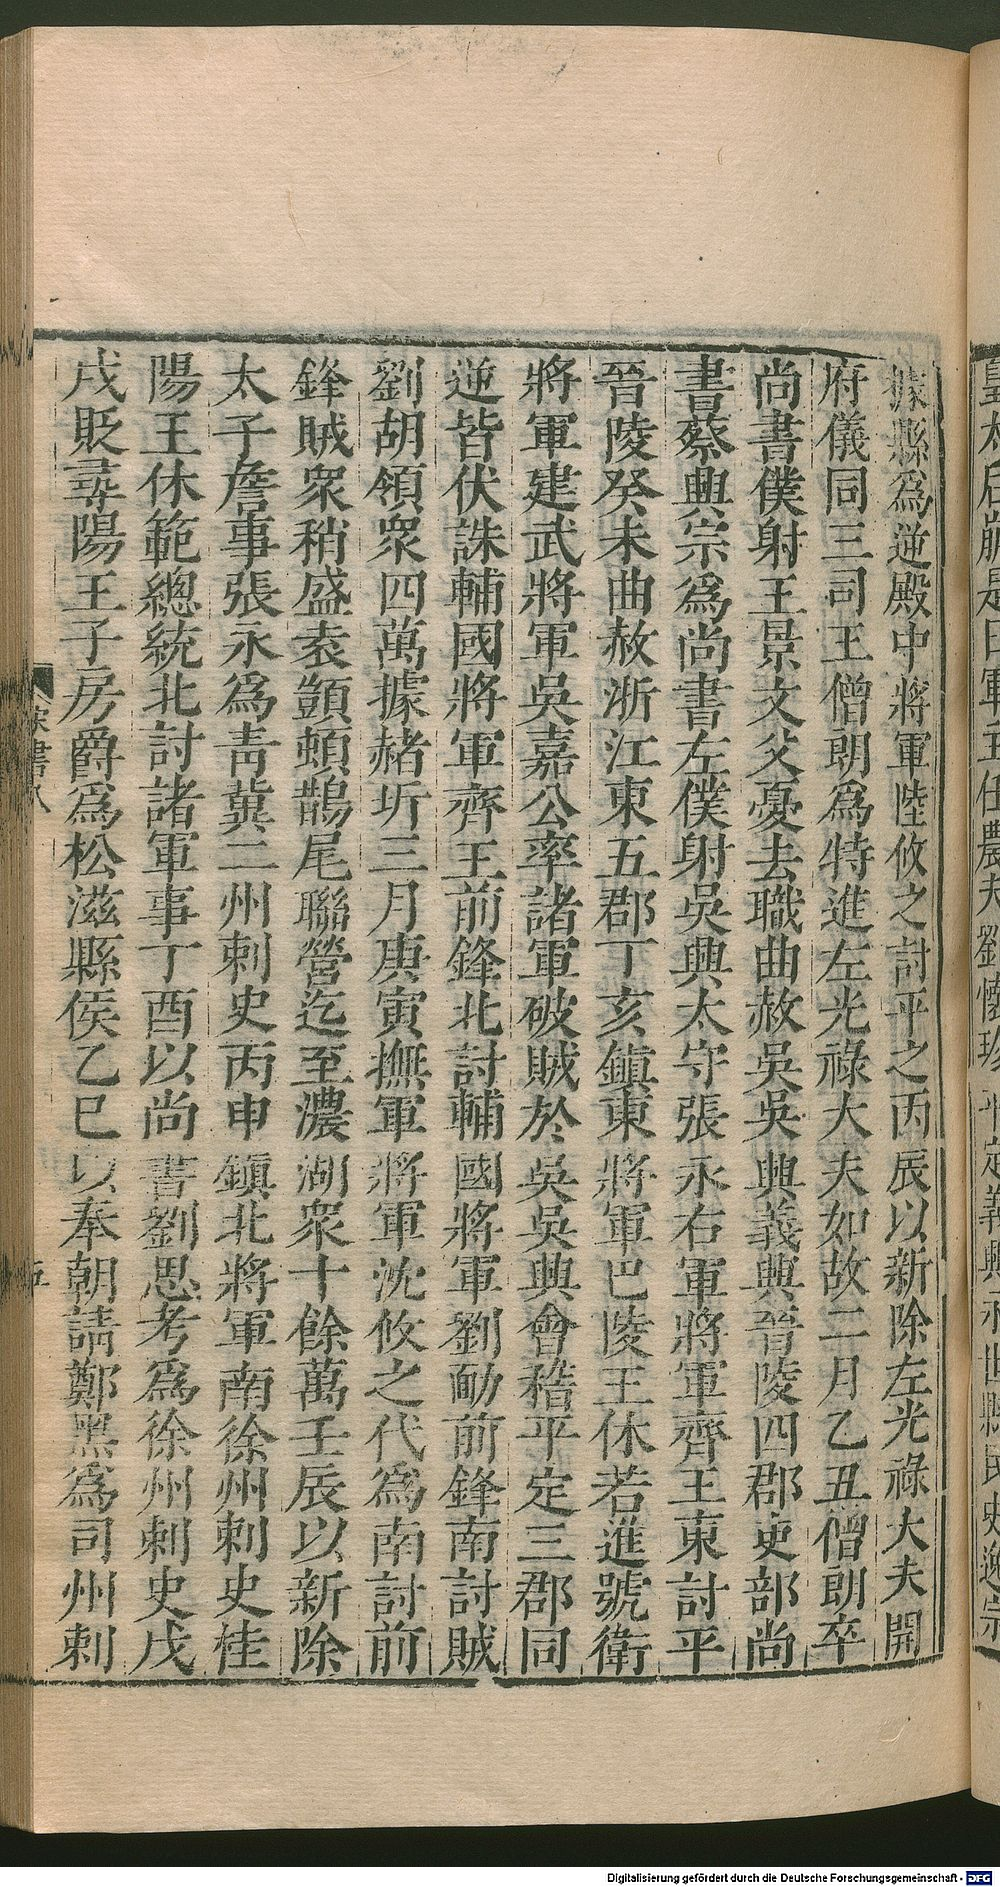 據縣爲逆殿中將軍陸攸之討平之丙辰以新除左光祿大夫開
府儀同三司王僧朗爲特進左光祿大夫如故二月乙丑僧朗卒
尚書僕射王景文父憂去職曲赦吳吳興義興晉陵四郡吏部尚
書蔡興宗爲尚書左僕射吳興太守張永右軍將軍齊王東討平
晉陵癸未曲赦浙江東五郡丁亥鎭東將軍巴陵王休若進號衛
將軍建武將軍吳嘉公率諸軍破賊於吳吳興會稽平定三郡同
逆皆伏誅輔國將軍齊王前鋒北討輔國將軍劉勔前鋒南討賊
劉胡領衆四萬據赭圻三月庚寅撫軍將軍沈攸之代爲南討前
鋒賊衆稍盛袁顗頓鵲尾聯營迄至濃湖衆十餘萬壬辰以新除
太子詹事張永爲靑冀二州刺史丙申鎭北將軍南徐州刺史桂
陽王休範總統北討諸軍事丁酉以尚書劉思考爲徐州刺史戊
戌貶尋陽王子房爵爲松滋縣侯乙巳以奉朝請鄭黑爲司州刺
宋書八
五
皇太后崩是日軍主任農夫劉懷珍平定義興永世縣民史逸宗
Digitalisierung gefördert durch die Deutsche Forschungsgemeinschaft - DFG